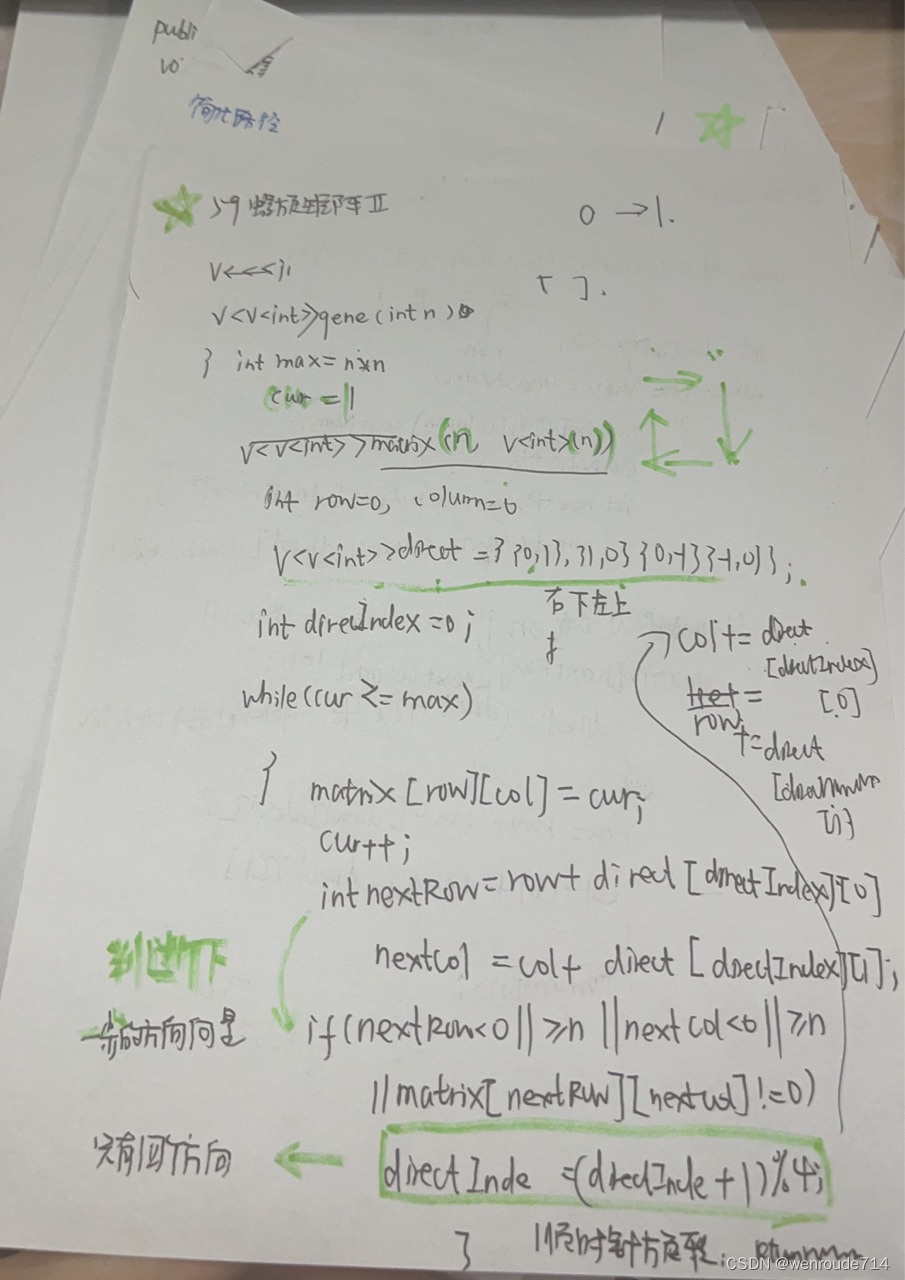 publi
vo
简化路径
59 螺旋矩阵 II
0 → 1.
V<<<>;
[ ].
V<V<int>>gene(int n)
} int max = n*n
cur = 1
V<V<int>>matrix(n V<int>(n))
int row=0, column=0
V<V<int>>direct = }{0,1},{1,0}{0,-1}{-1,0}};
右下左上
int direcIndex=0;
col+= direct
[directIndex]
[0]
row
+=direct
while(cur <= max)
} matrix[row][col]=cur;
cur++;
int nextRow=row+ direct[directIndex][0]
nextCol =col+ direct[directIndex][1];
判断下
一步的方向是
if(nextRow<0|| ≥n ||nextCol<0|| ≥n
||matrix[nextRow][nextCol]!=0)
只有四个方向
directInde =(direcInde+1)%4;
} 顺时针方向旋转.
CSDN @wenroude714